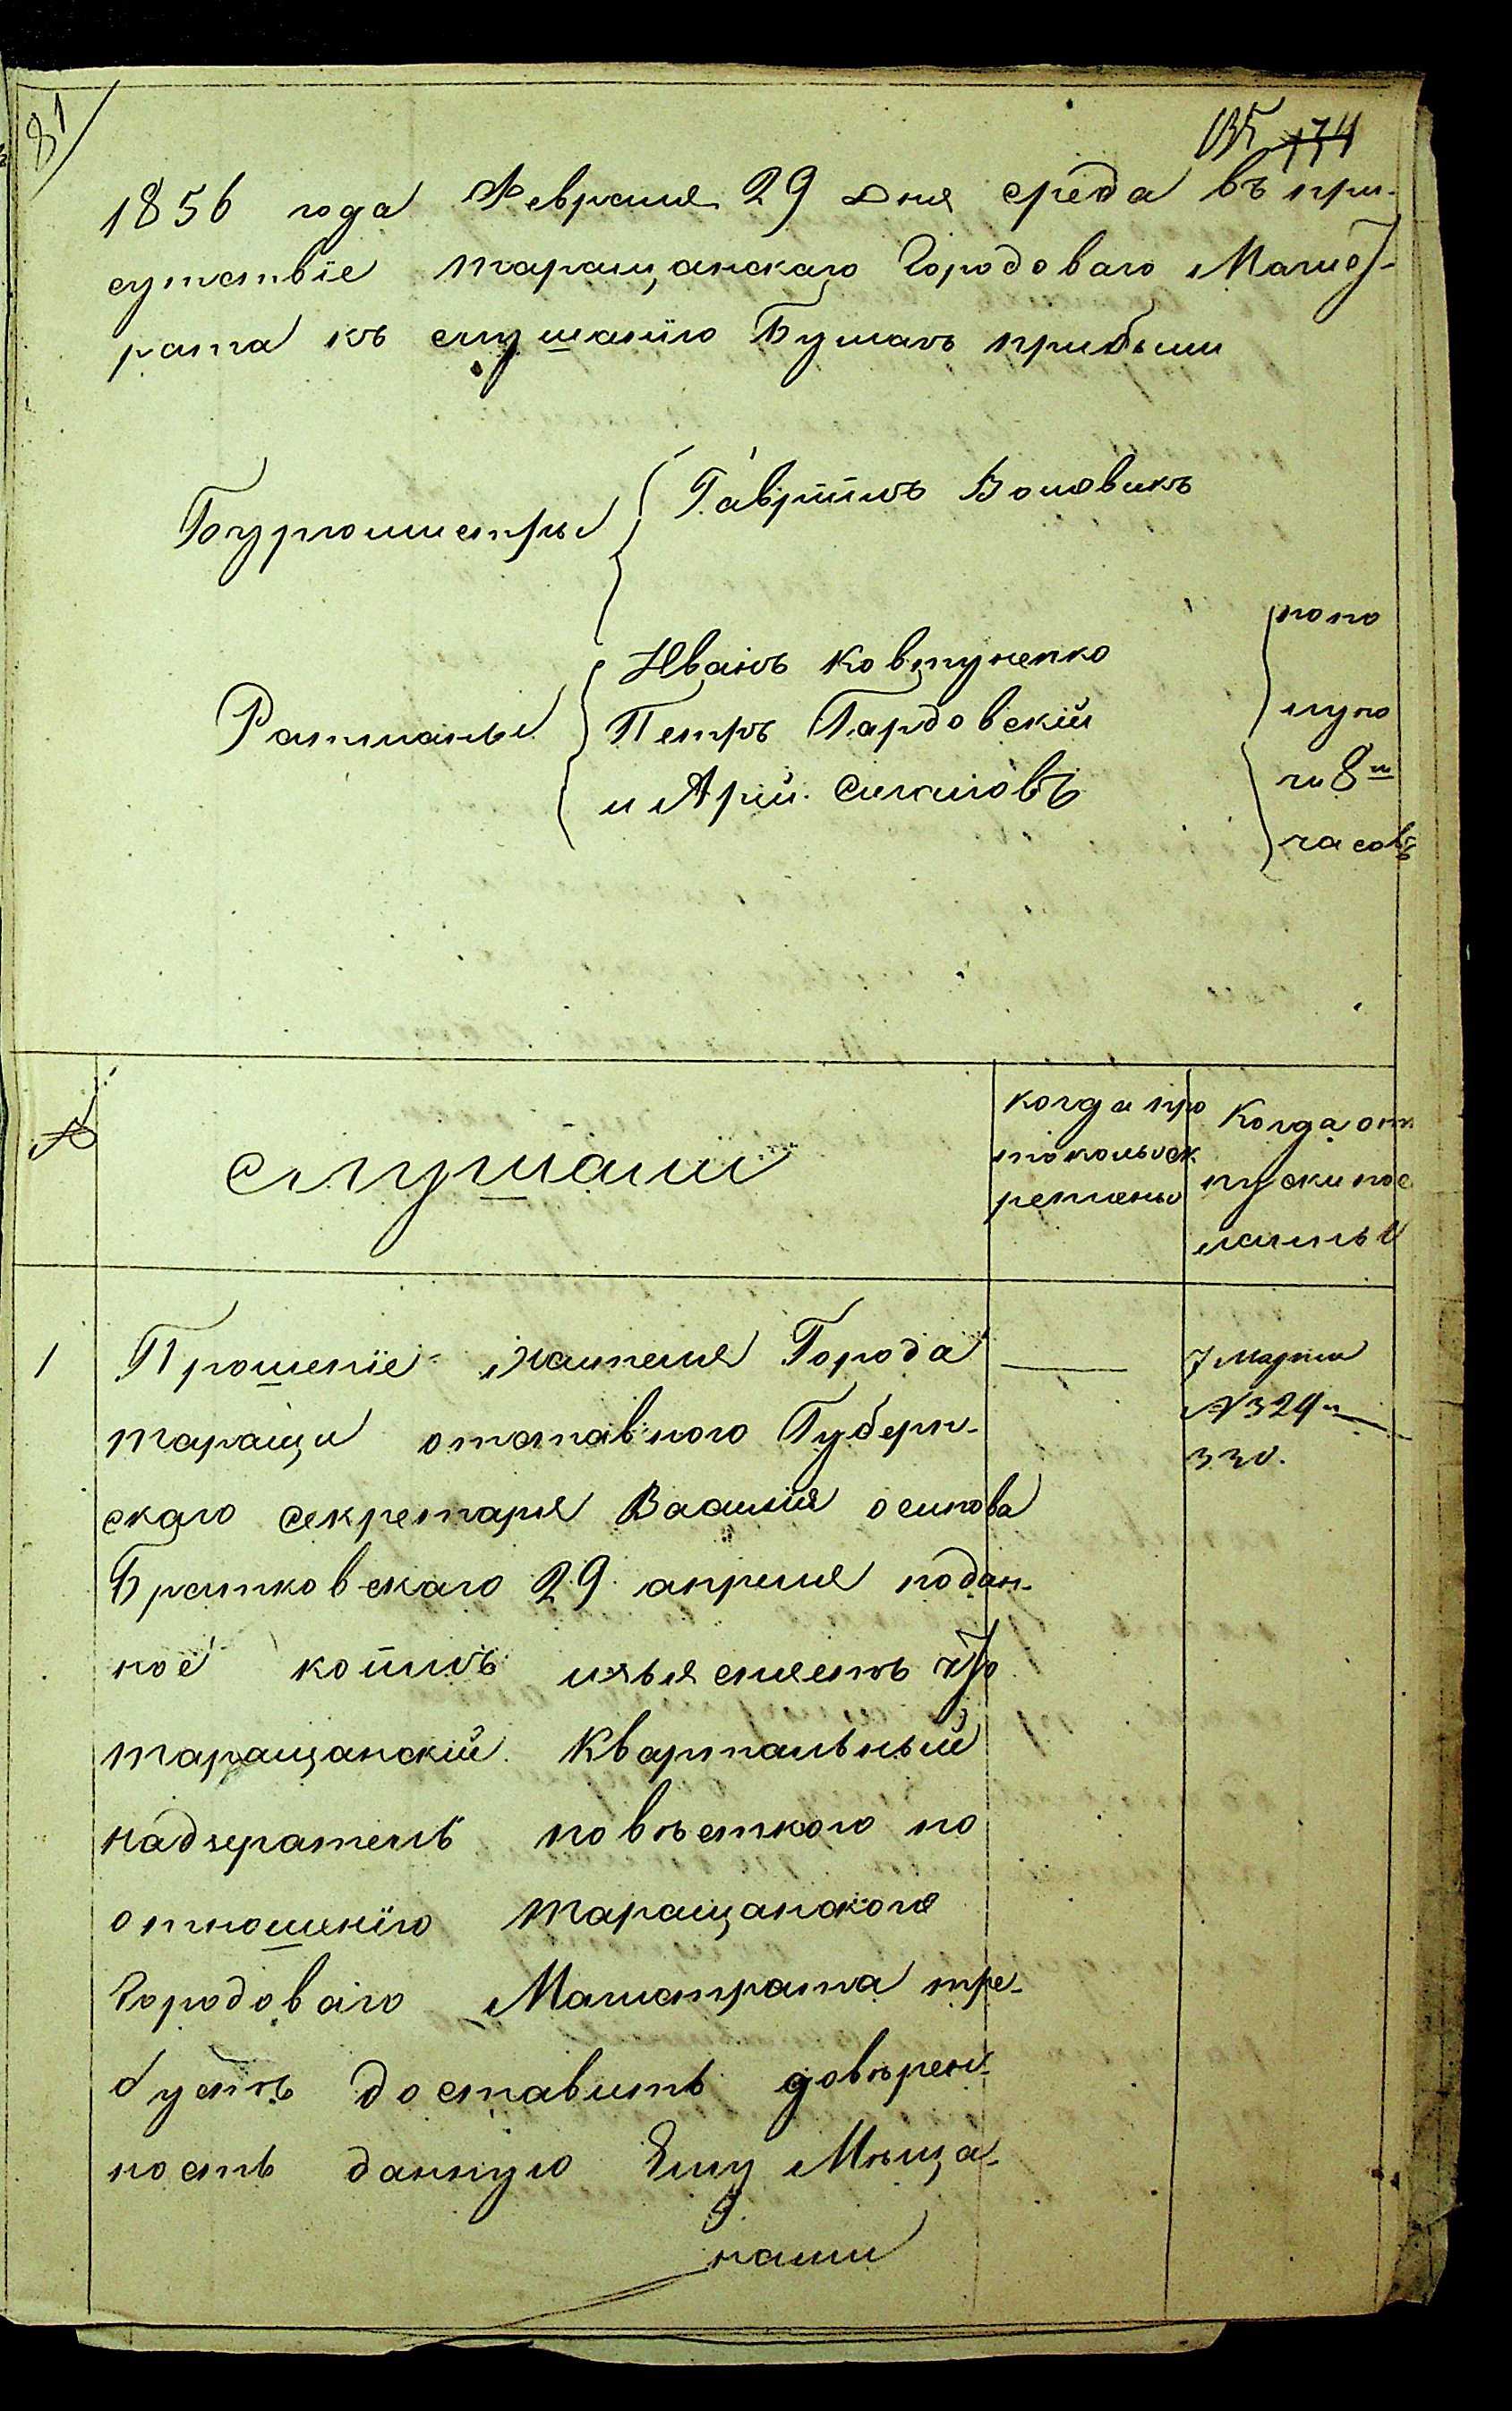 81
135 174
1856 года Февраля 29 дня среда въ при-
сутствіе таращанскаго Городоваго Магист-
рата къ слушанію Бумагъ прибыли
Бургомистры Гаврiилъ Воловикъ
Ратманы Иванъ Ковтуненко
Петръ Гардовскій
и Арій
попо
луно
чи 8ми
часовъ
№
слушали
когда про
токольск
решены
Когда от
пуски пос
ланны
1 Прошеніе жителя Города
таращи отставного Губерн-
скаго секретаря Василія осипова
Братковскаго 29 апреля подан-
ное коимъ изьясняетъ что
таращанскій Квартальный
надзератель повѣсткою по
отношенію таращанского
Городоваго Магистрата тре-
буетъ доставить довѣрен-
ность данную Ему Мѣща-
нами
7 Марта
№ 329 и
330.